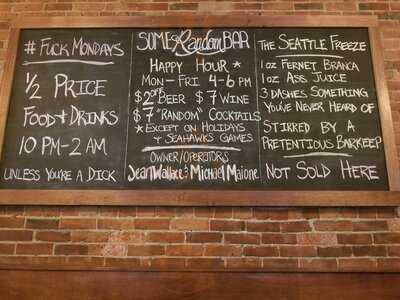 # Fuck Mondays
1/2 Price
Food & Drinks
10 PM - 2 AM
Unless You're a Dick
Some Random Bar
Happy Hour *
Mon - Fri 4-6 pm
$2 off Beer $7 Wine
$7 "Random" Cocktails
* Except on Holidays
& Seahawks Games
Owner/Operators
Jean Wallace & Michael Malone
The Seattle Freeze
1 oz Fernet Branca
1 oz Ass Juice
3 Dashes Something
You've Never Heard of
Stirred by a
Pretentious Barkeep
Not Sold Here